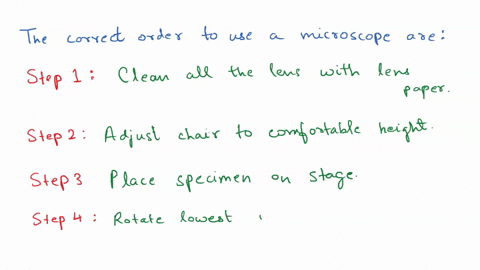 The correct order to use a microscope are:
Step 1: Clean all the lens with lens
paper.
Step 2: Adjust chair to comfortable height.
Step 3 Place specimen on stage.
Step 4: Rotate lowest